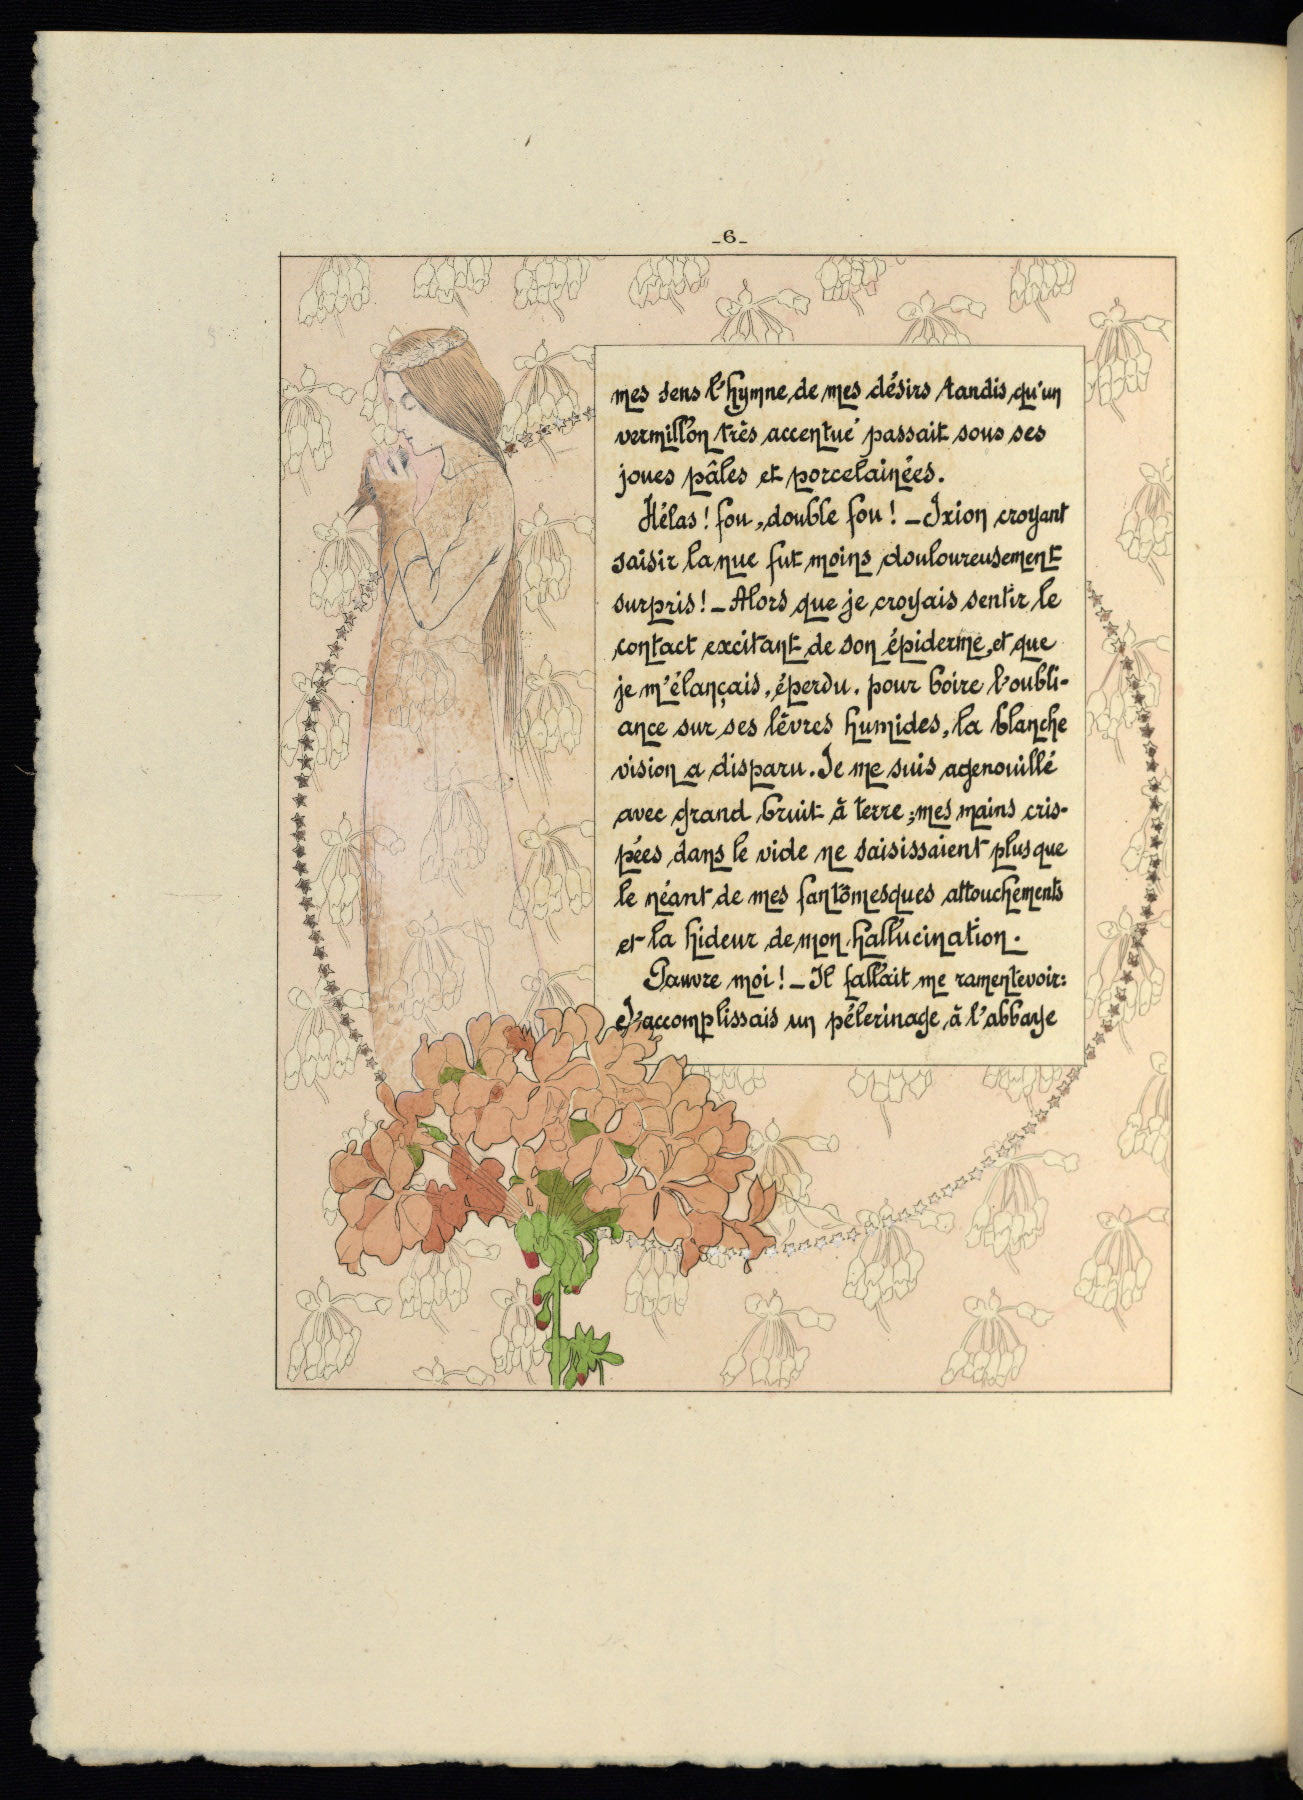 _6_
mes sens l'hymne de mes désirs tandis qu'un
vermillon très accentué passait sous ses
joues pâles et porcelainées.
Hélas ! fou, double fou ! _ Ixion croyant
saisir la nue fut moins douloureusement
surpris ! _ Alors que je croyais sentir le
contact excitant de son épiderme, et que
je m'élançais, éperdu, pour boire l'oubli-
ance sur ses lèvres humides, la blanche
vision a disparu. Je me suis agenouillé
avec grand bruit à terre ; mes mains cris-
pées dans le vide ne saisissaient plus que
le néant de mes fantômesques attouchements
et la hideur de mon hallucination.
Pauvre moi ! _ Il fallait me ramentevoir :
J'accomplissais un pélerinage à l'abbaye